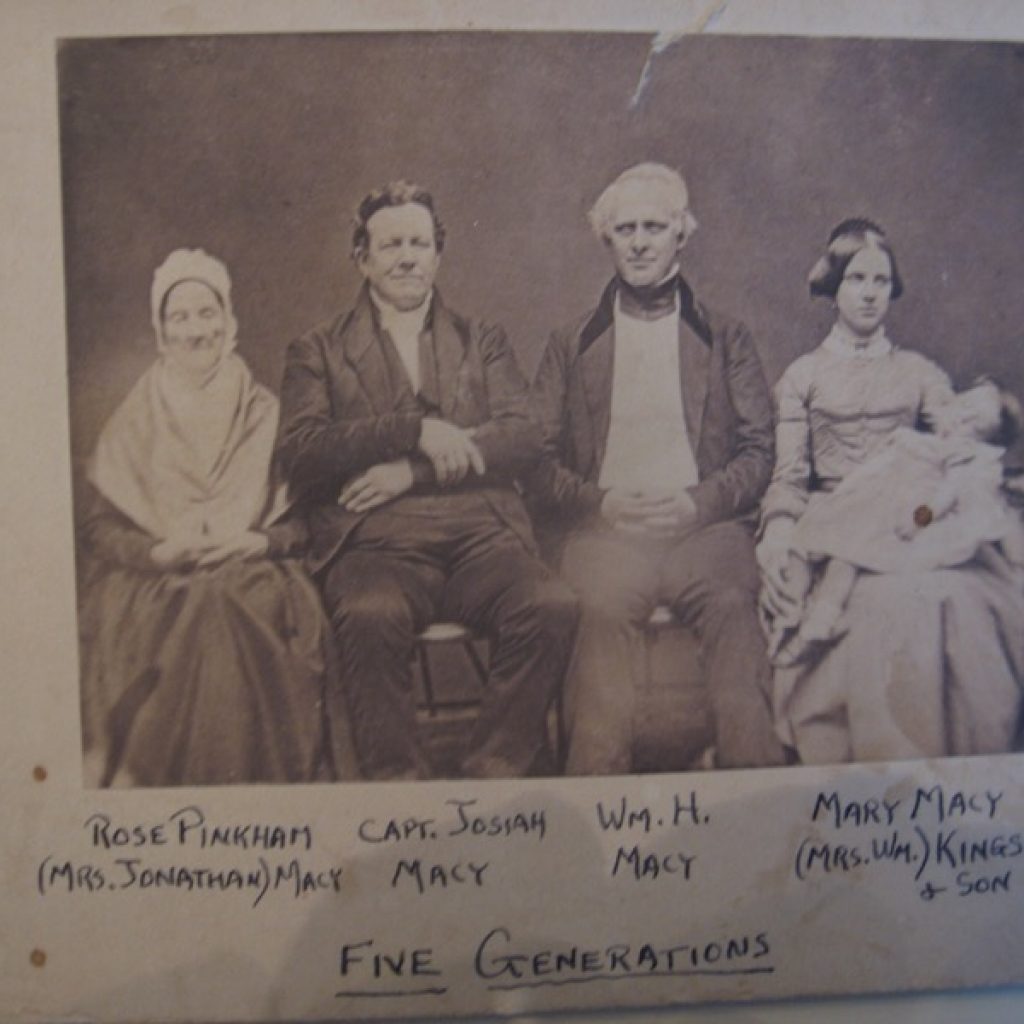 ROSE PINKHAM
(MRS. JONATHAN) MACY
CAPT. JOSIAH
MACY
WM. H.
MACY
MARY MACY
(MRS. WM.) KINGS
& SON
FIVE GENERATIONS